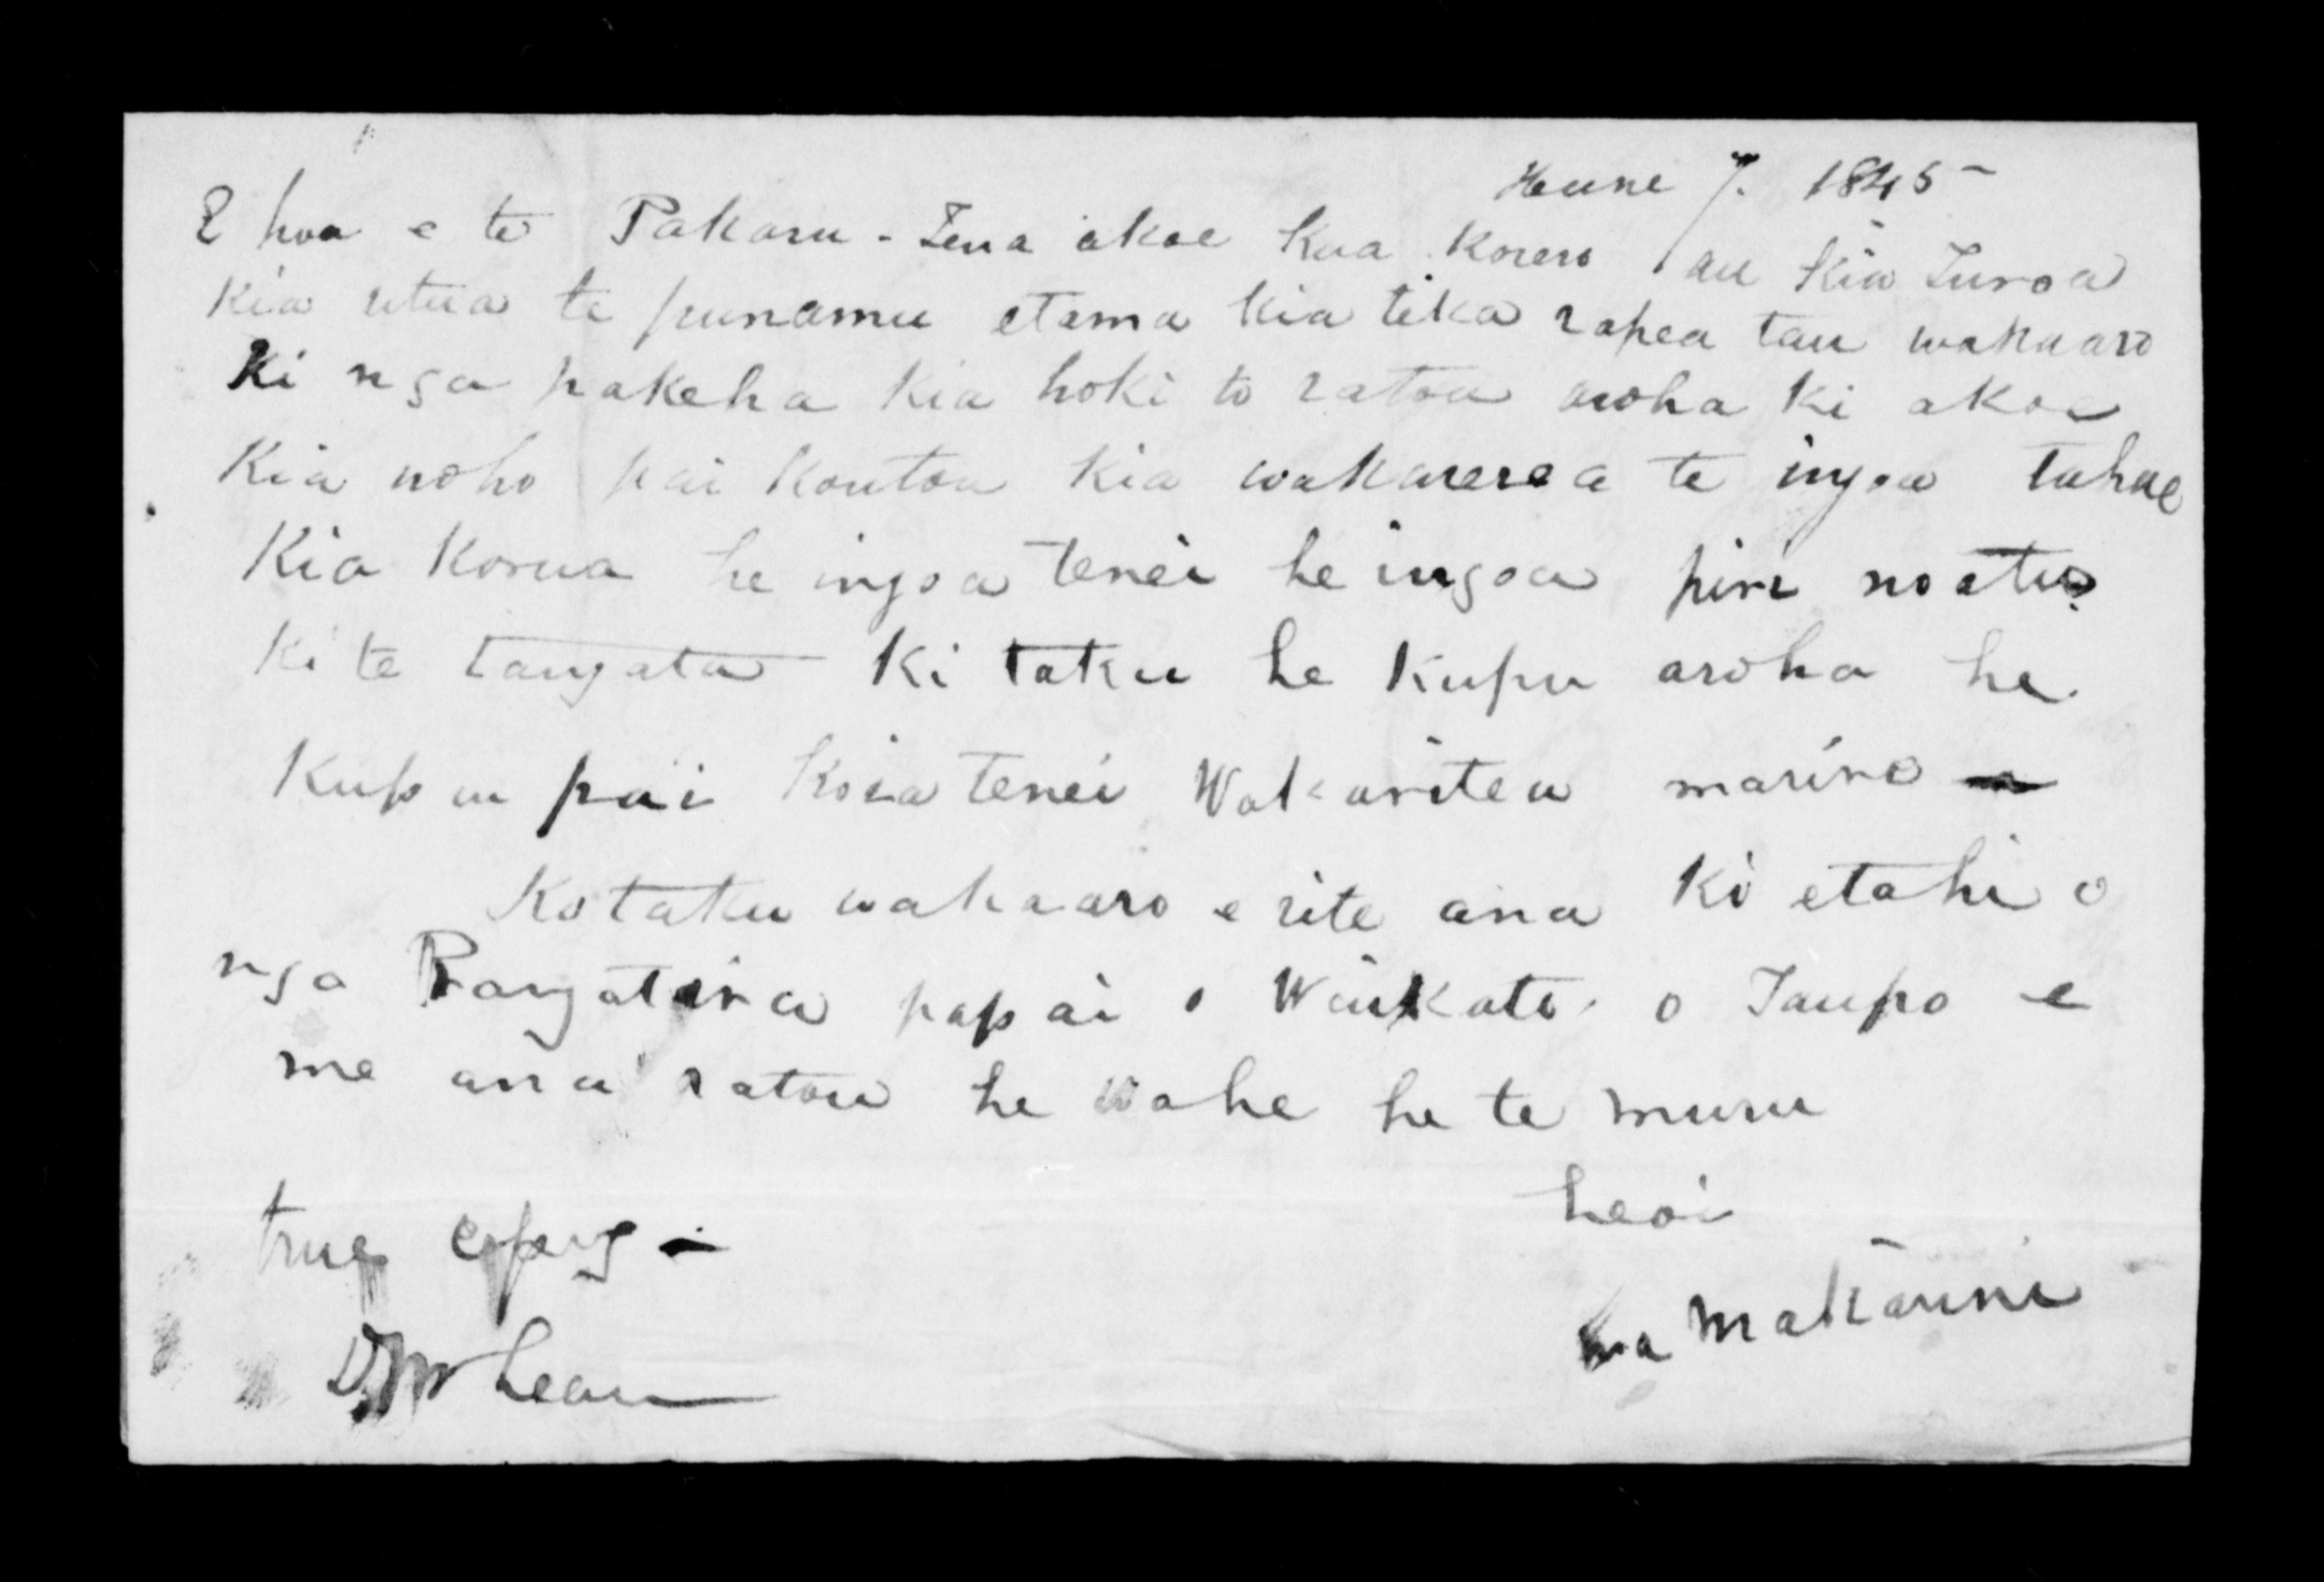 Hune 7. 1845
E hoa e te Pakaru - Tena akoe kua korero au kia Turoa
kia utua te punamu etama kia tika rapea tau wakaaro
ki nga pakeha kia hoki to ratou aroha ki akoe
kia noho pai koutou kia wakarerea te ingoa tahae
kia korua he ingoa tenei he ingoa piri noatu
ki te tangata ki taku he kupu aroha he
kupu pai koia tenei Wakaritea marire
Ko taku wakaaro e rite ana ki etahi o
nga Rangatira papai o Waikato o Taupo e
me ana ratou he wahe he te muru
heoi
na Makarini
true copy -
D McLean